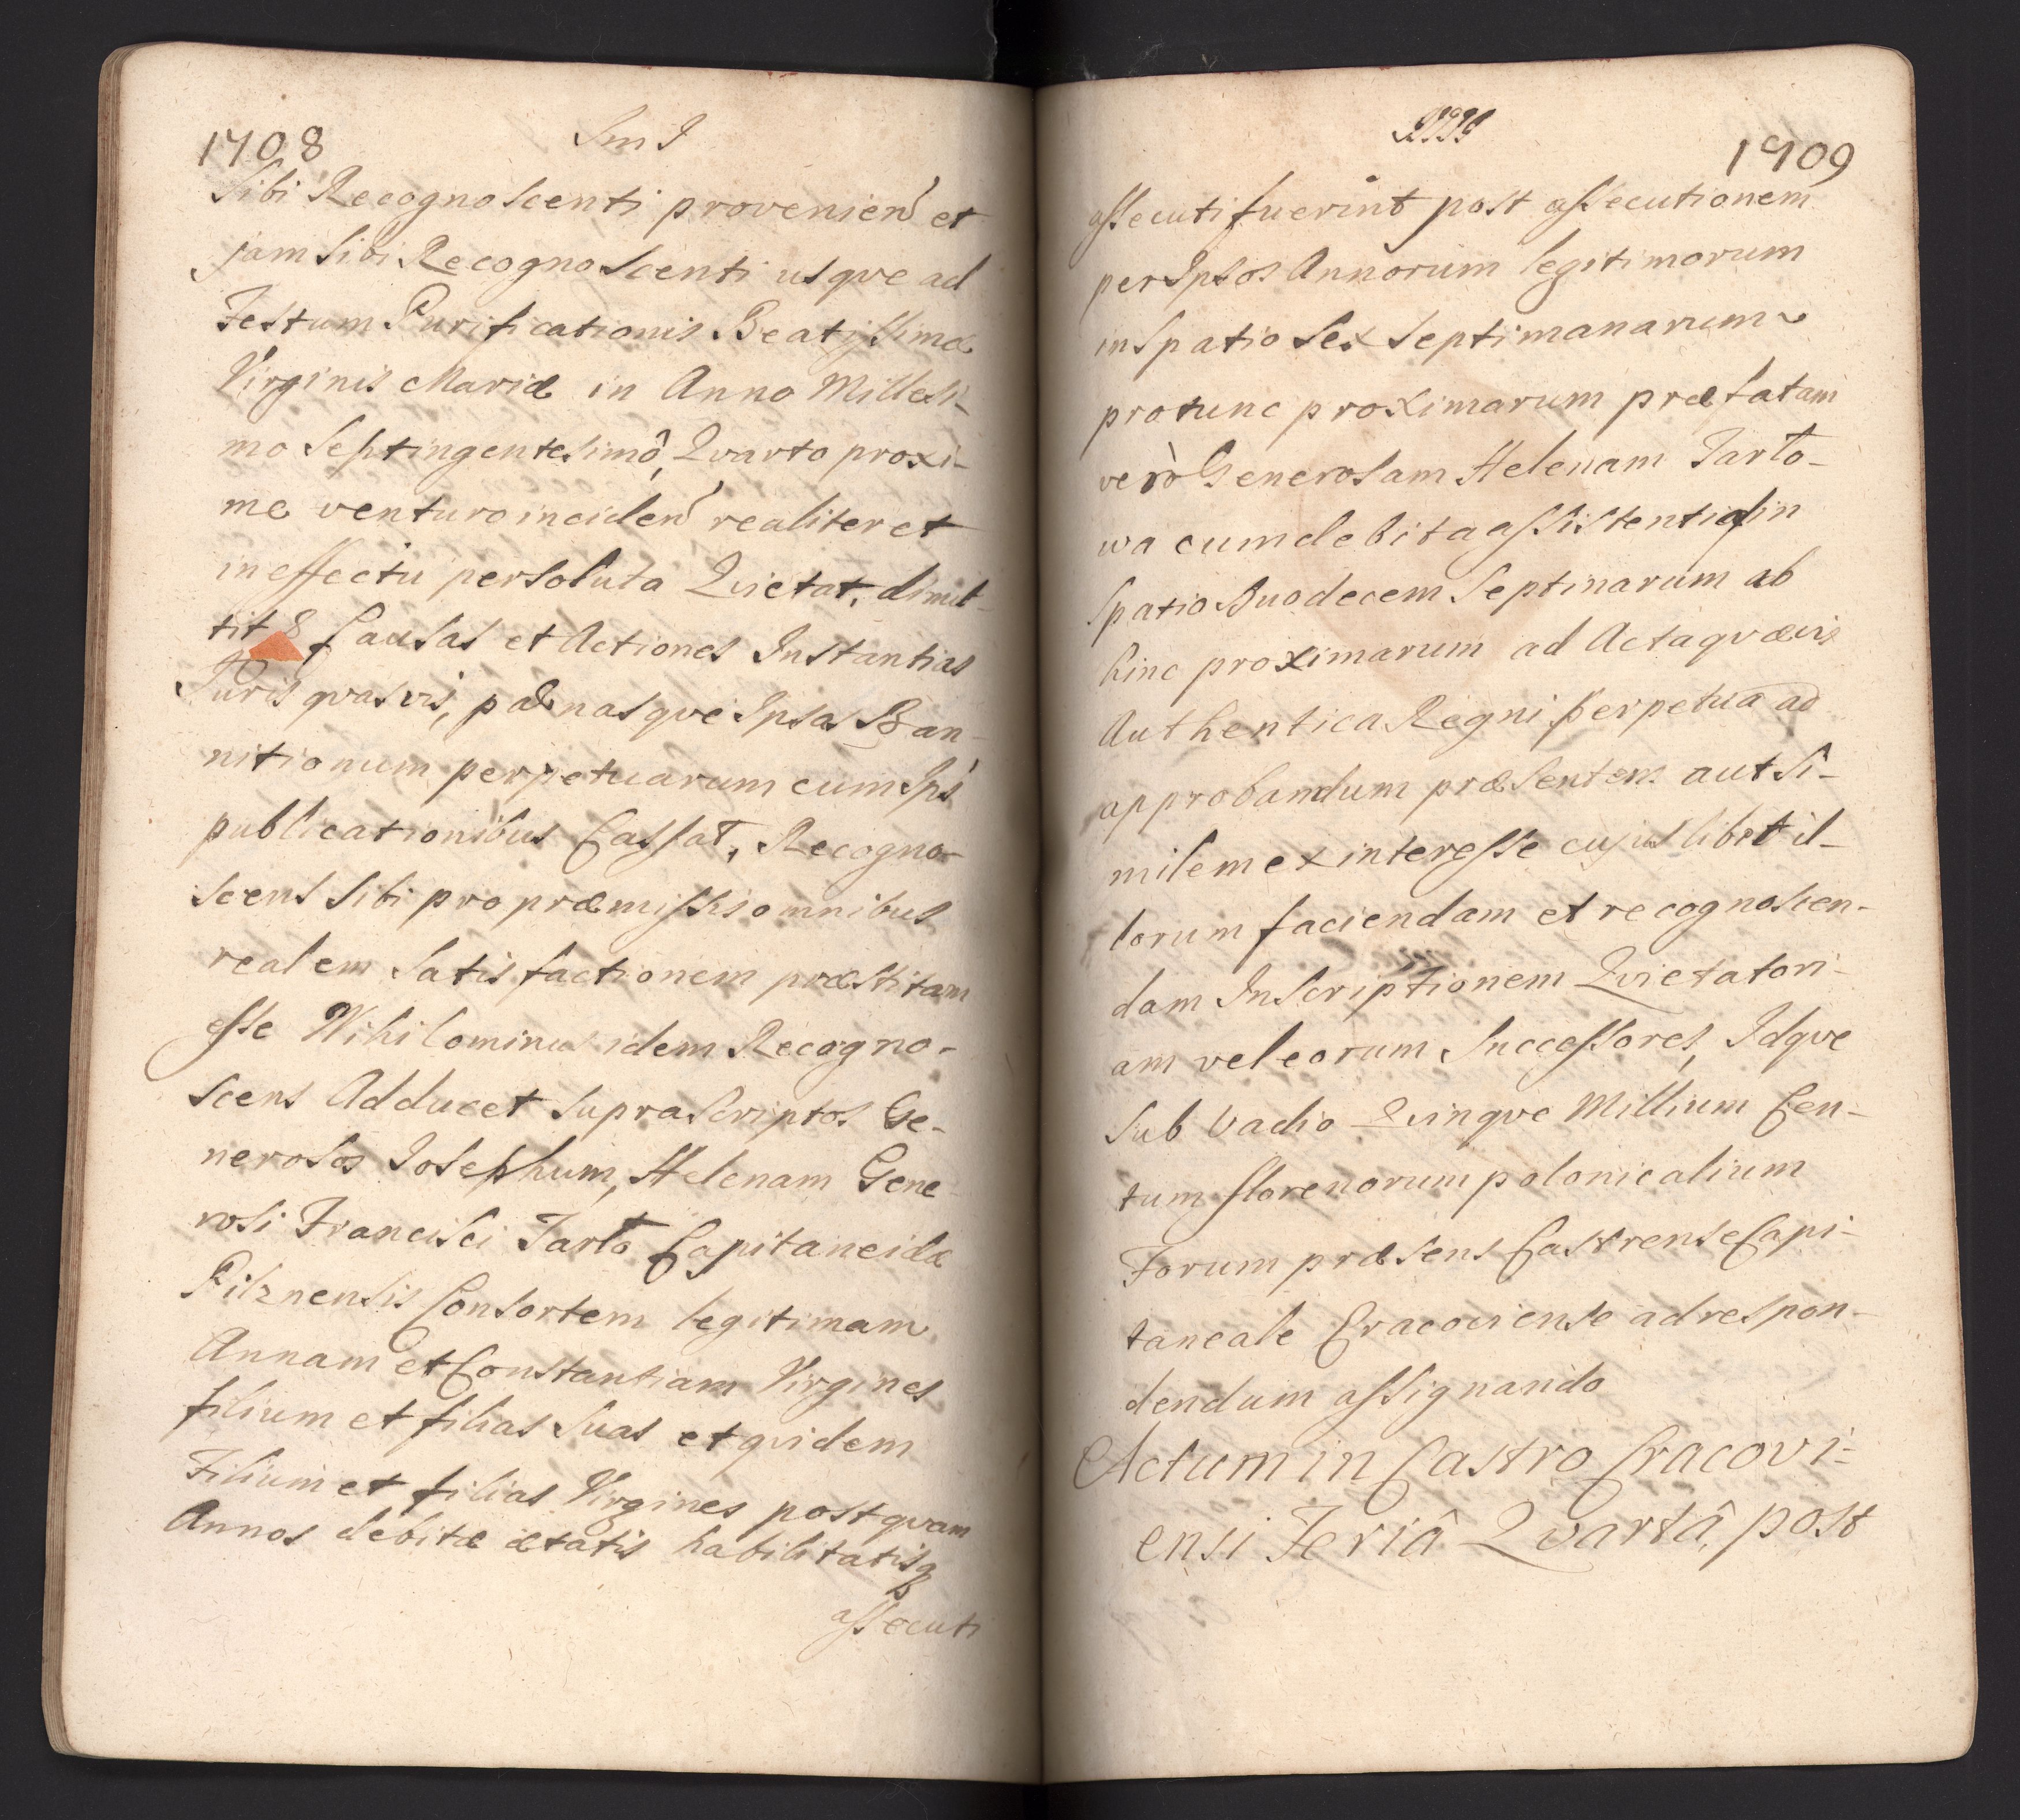 1708
Sm I
Sibi Recognoscenti provenien et
jam sibi Recognoscenti usqve ad
Festum Purificationis Beatissimæ
Virginis Mariæ in Anno Millesi-
mo Septingentesimô, Qvarto proxi-
me venturo inciden realiter et
in effectu persoluta Qvietat, dimit-
tit & Causas et Actiones Instantias
Juris qvasvis, pænasqve Ipsas Ban-
nitionum perpetuarum cum Ips
publicationibus Cassat, Recogno-
scens sibi pro præmissis omnibus
realem satisfactionem præstitam
esse Nihilominus idem Recogno-
scens Adducet suprascriptos Ge-
nerosos Josephum, Helenam Gene
rosi Francisci Jarło Capitaneidæ
Pilznensis Consortem legitimam
Annam et Constantiam Virgines
filium et filias suas et qvidem
Filium et filias Virgines postqvam
Annos debitæ ætatis habilitatisq
assecuti
1709
assecuti fuerint post assecutionem
per Ipsos Annorum legitimorum
in spatio sex septimanarum
protunc proximarum præfatam
verò Generosam Helenam Jarło-
wa cum debita assistentia in
spatio Duodecem Septinarum ab
hinc proximarum ad Acta qvævis
Authentica Regni perpetua ad
approbandum præsentem aut si-
milem ex interesse cujuslibet il-
lorum faciendam et recognoscen-
dam Inscriptionem Qvietatori-
am vel eorum Successores, Idqve
sub vadio Qvinqve Millium Cen-
tum florenorum polonicalium
Forum præsens Castrense Capi-
taneale Cracoviense ad respon-
dendum assignando
Actum in Castro Cracovi-
ensi Feriâ Qvartâ, post